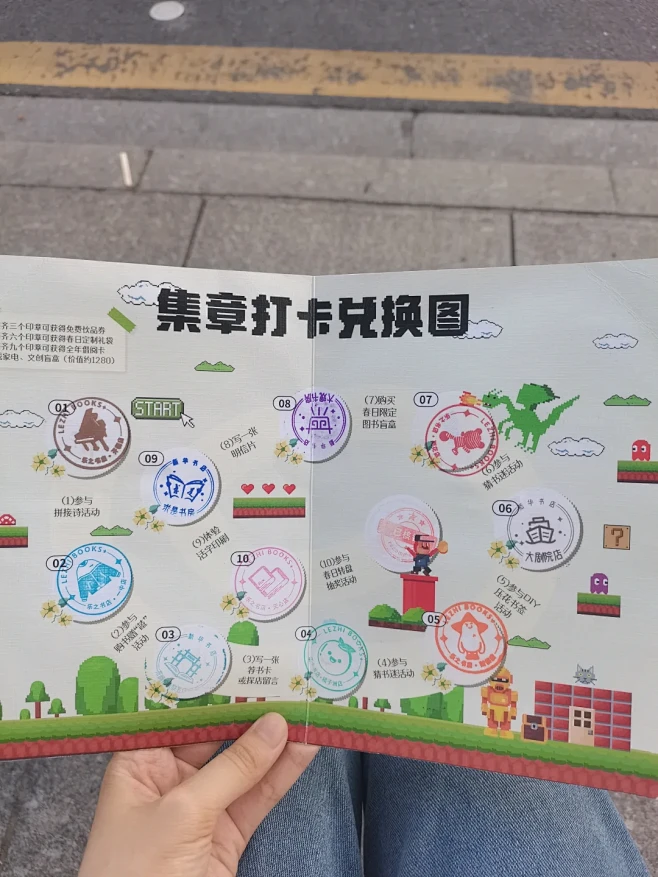 集章打卡兑换图
齐三个印章可获得免费饮品券
齐六个印章可获得春日定制礼袋
齐九个印章可获得全年借阅卡
家电、文创盲盒（价值约1280）
START
01
LEZHI BOOKS
(1)参与
拼接诗活动
02
LEZHI BOOKS
乐之书店
(2)参与
购书赠“谜”
活动
03
新华书店
(3)写一张
荐书卡
或探店留言
04
LEZHI BOOKS
(4)参与
猜书迷活动
05
LEZHI BOOKS
(5)参与DIY
压花书签
活动
06
新华书店
大剧院店
(6)参与
猜书迷活动
07
LEZHI BOOKS
(7)购买
春日限定
图书盲盒
08
(8)写一张
明信片
09
新华书店
(9)体验
活字印刷
10
LEZHI BOOKS
(10)参与
春日转盘
抽奖活动
?